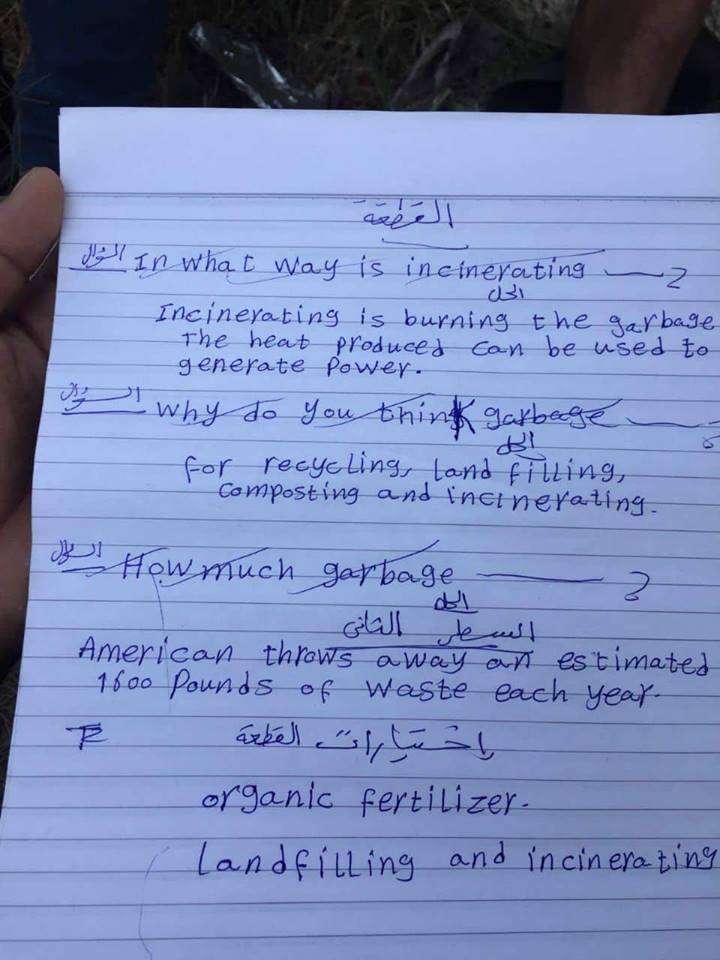 القطعة
السؤال In what way is incinerating ——— ?
الحل
Incinerating is burning the garbage
The heat produced can be used to
generate Power.
السؤال why do you think garbage ———
الحل
for recycling, land filling,
composting and incinerating.
السؤال How much garbage ——— ?
الحل
السطر الثاني
American throws away an estimated
1600 Pounds of waste each year.
إختيارات القطعة
organic fertilizer.
Landfilling and incinerating